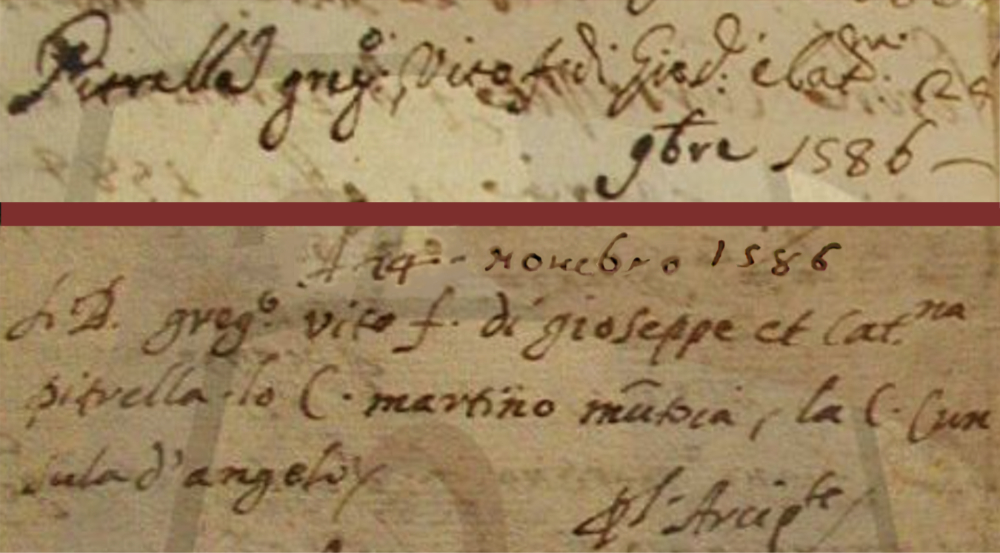 Pitrella greg.o Vito f. di Gios.e e Cat.na 24
9bre 1586
A 24 - Novebro 1586
f. D. greg.o vito f. di gioseppe et Cat.na
pitrella lo C. martino mūtoia, la C. Cun
sula d'angelo
Arcip.te